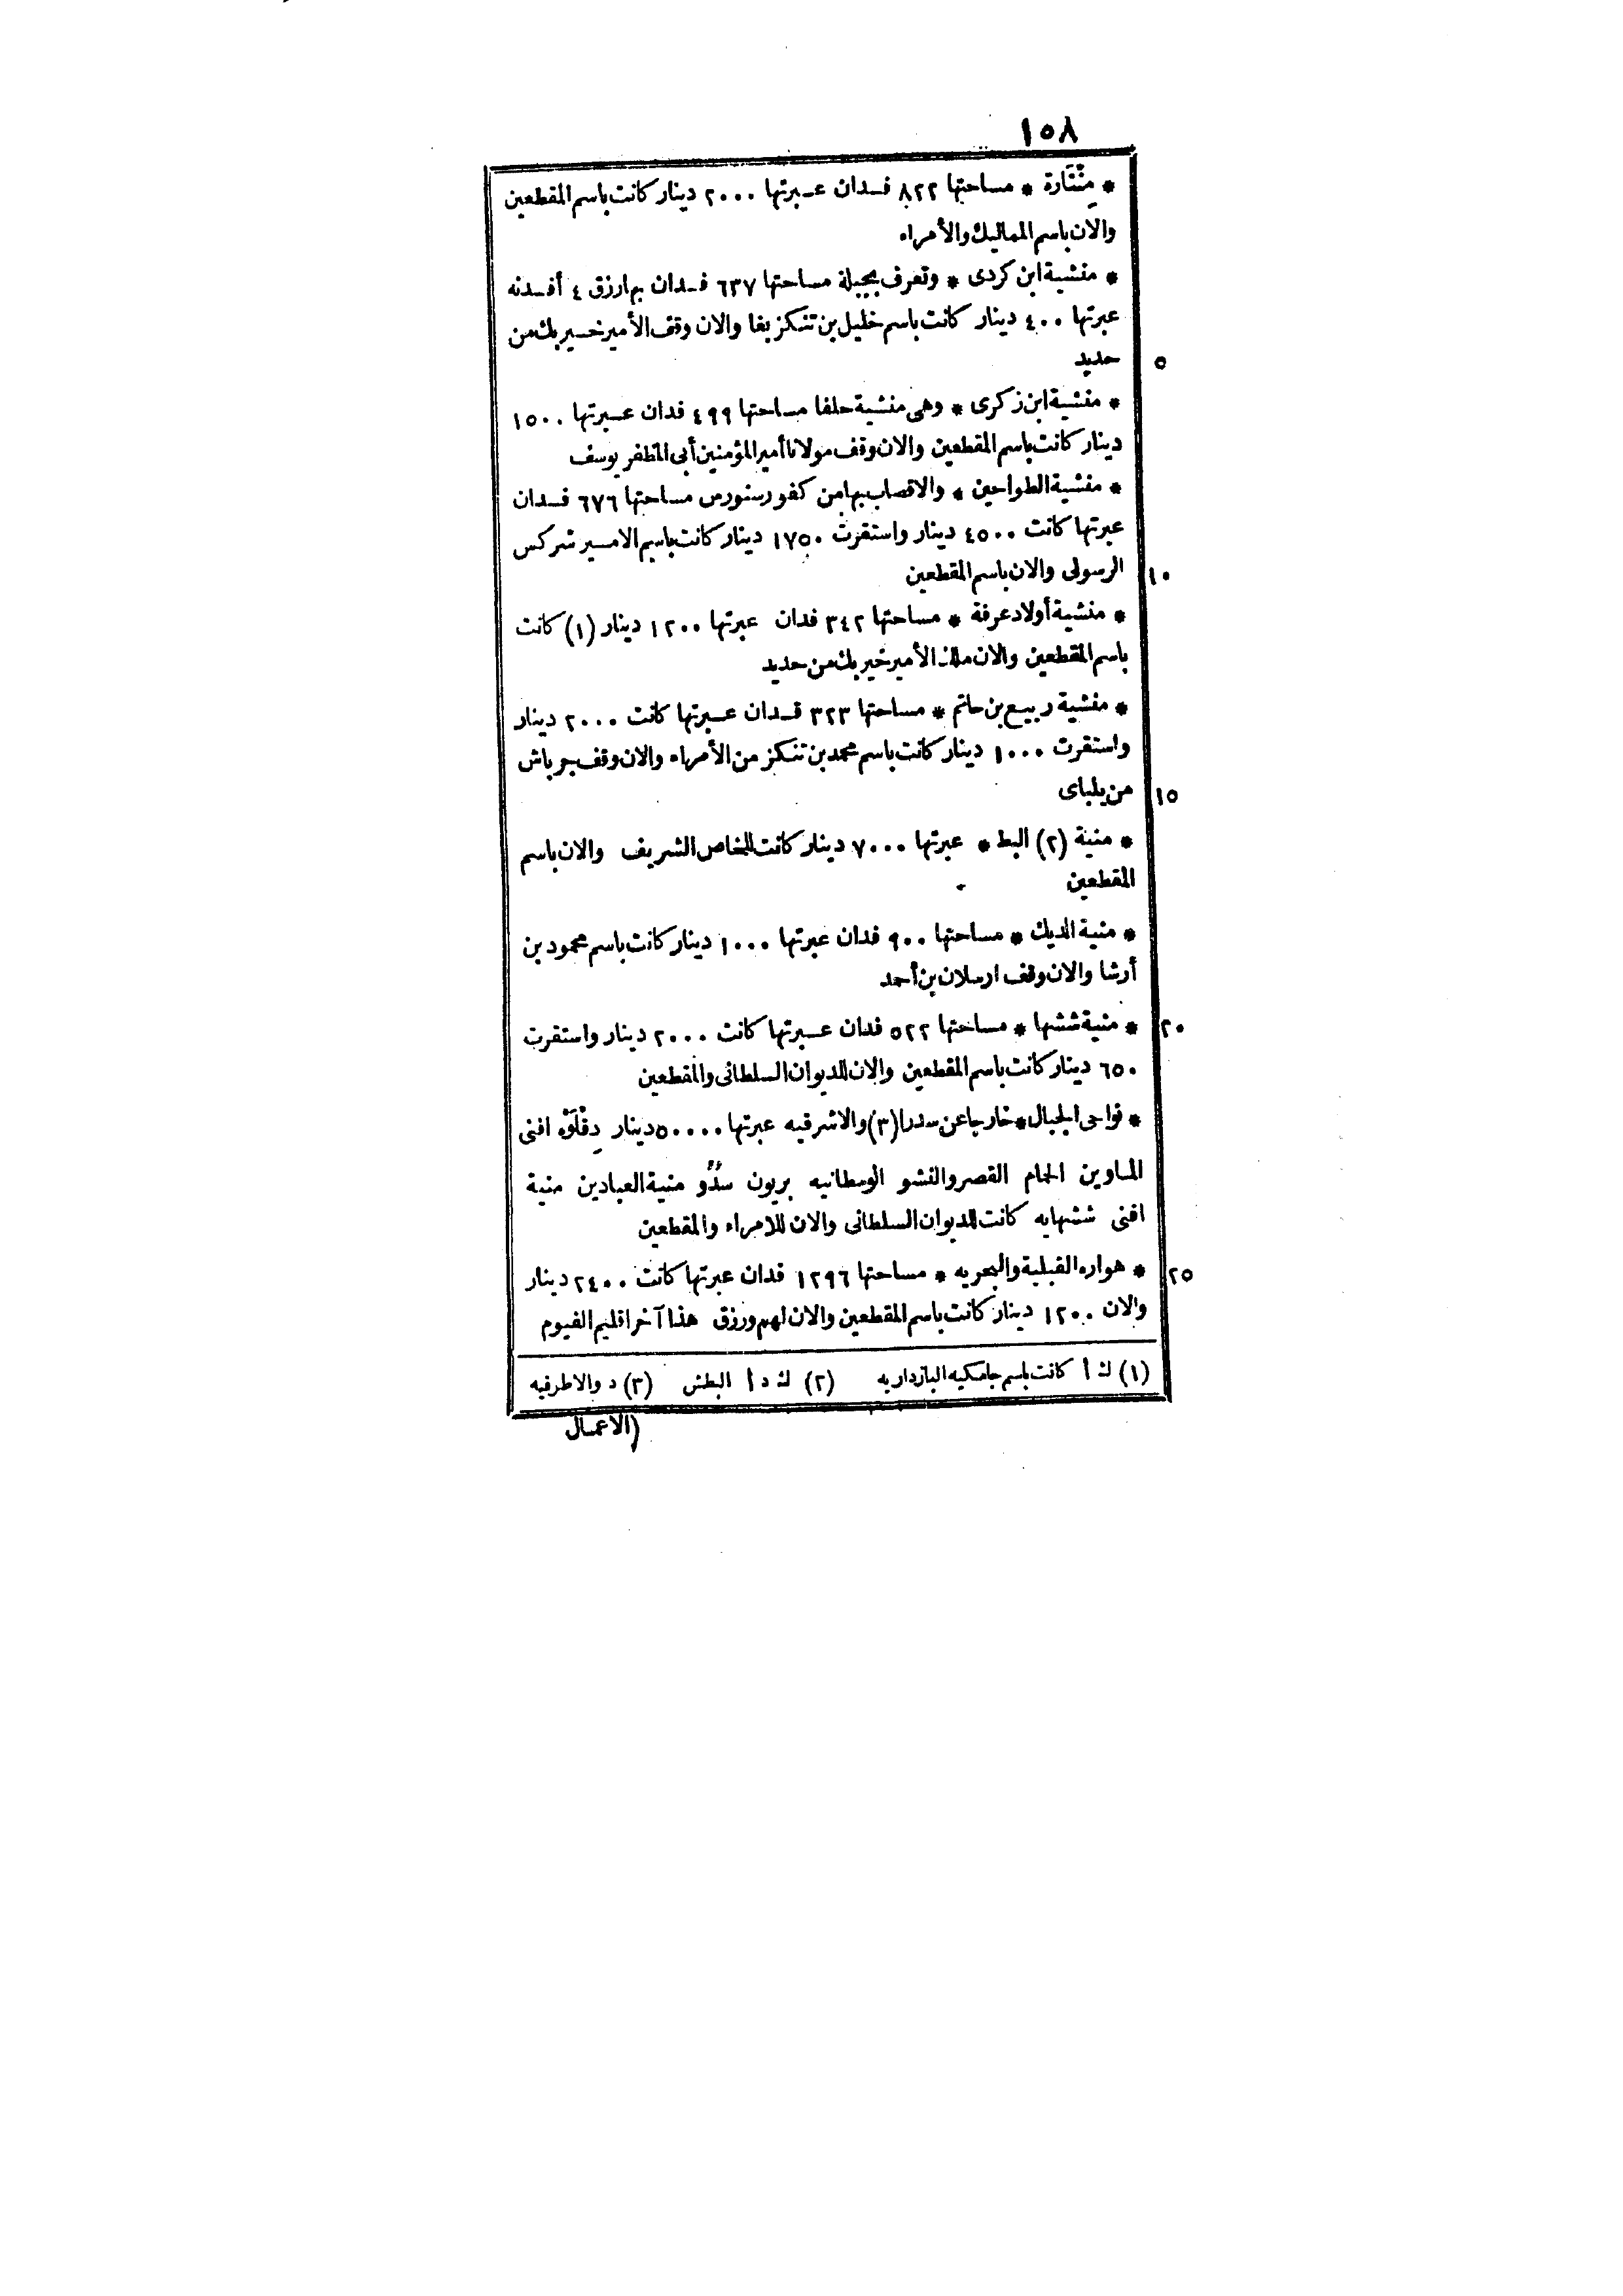 ١٥٨
* مِنْتَارة * مساحتها ٨٢٢ فدان عبرتها ٢٠٠٠ دينار كانت باسم المقطعين
والان باسم المماليك والأمراء
* منشية ابن كردى * وتعرف بجبيلة مساحتها ٦٣٧ فدان بها رزق ٤ أفدنه
عبرتها ٤٠٠ دينار كانت باسم خليل بن تنكز بغا والان وقف الأمير خير بك من
٥ حديد
* منشية ابن زكرى * وهى منشية حلفا مساحتها ٤٩٩ فدان عبرتها ١٥٠٠
دينار كانت باسم المقطعين والان وقف مولانا أمير المؤمنين أبى المظفر يوسف
* منشية الطواحين * والاقصاب بها من كفور سنورس مساحتها ٦٧٦ فدان
عبرتها كانت ٤٥٠٠ دينار واستقرت ١٧٥٠ دينار كانت باسم الامير شركس
١٠ الرسولى والان باسم المقطعين
* منشية أولاد عرفة * مساحتها ٣٤٢ فدان عبرتها ١٢٠٠ دينار (١) كانت
باسم المقطعين والان ملك الأمير خير بك من حديد
* منشية ربيع بن حاتم * مساحتها ٣٢٣ فدان عبرتها كانت ٢٠٠٠ دينار
واستقرت ١٠٠٠ دينار كانت باسم محمد بن تنكز من الأمراء والان وقف جرباش
١٥ من يلباى
* منية (٢) البط * عبرتها ٧٠٠٠ دينار كانت للخاص الشريف والان باسم
المقطعين
* منية الديك * مساحتها ٩٠٠ فدان عبرتها ١٠٠٠ دينار كانت باسم محمود بن
أرشا والان وقف ارسلان بن أحمد
٢٠ * منية ششها * مساحتها ٥٢٢ فدان عبرتها كانت ٢٠٠٠ دينار واستقرت
٦٥٠ دينار كانت باسم المقطعين والان للديوان السلطانى والمقطعين
* نواحى الجبال * خارجا عن سدرا (٣) والاشرقيه عبرتها ٥٠٠٠٠ دينار دِقْلَوْه افنى
الماوين الحام القصر والنشو الوسطانيه بريون سدُّو منية العبادين منية
افنى ششهايه كانت للديوان السلطانى والان للامراء والمقطعين
٢٥ * هواره القبلية والبحريه * مساحتها ١٢٩٦ فدان عبرتها كانت ٢٤٠٠ دينار
والان ١٢٠٠ دينار كانت باسم المقطعين والان لهم ورزق هذا آخر اقليم الفيوم
(١) ك أ كانت باسم جامكيه البازداريه (٢) ك د أ البطش (٣) د والاطرفيه
(الاعمال